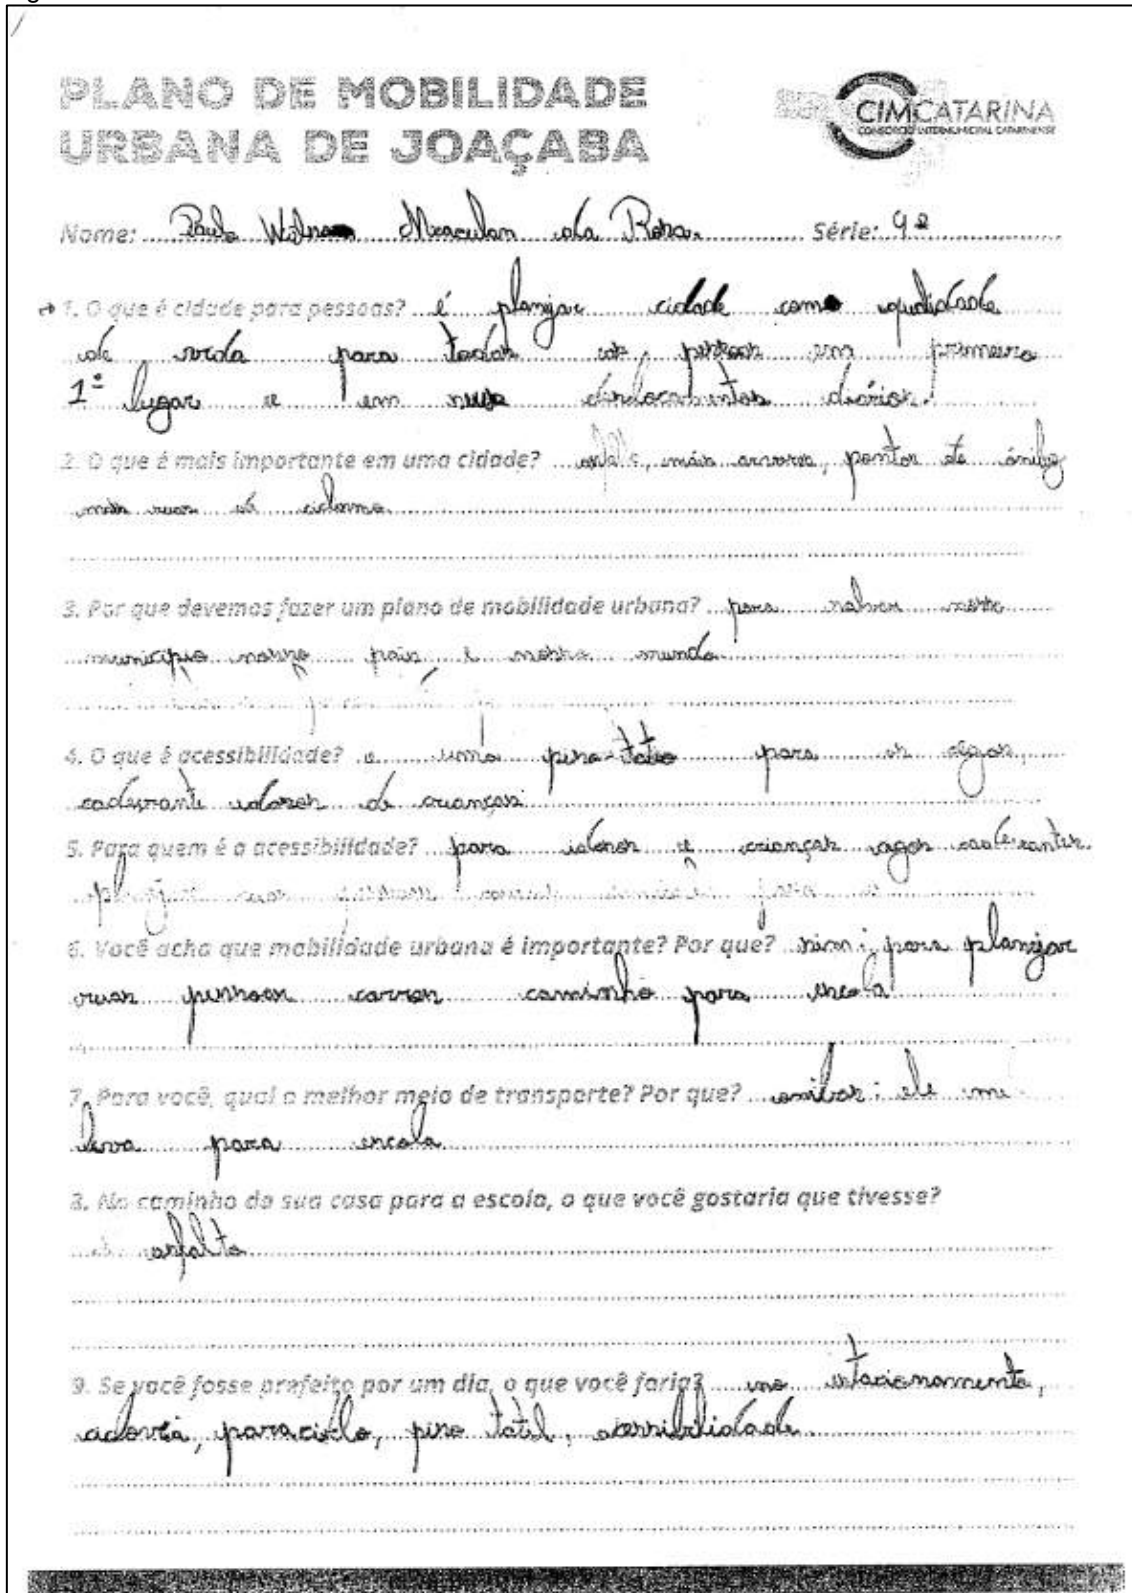 PLANO DE MOBILIDADE
URBANA DE JOAÇABA
CIMCATARINA
CONSÓRCIO INTERMUNICIPAL CATARINENSE
Nome: Paulo Maculan da Rosa Série: 9º
1. O que é cidade para pessoas? é planejar cidade como qualidade
de vida para todas as pessoas em primeiro
1º lugar e em seus deslocamentos diários.
2. O que é mais importante em uma cidade? mais arvores, pontos de
mais ruas
3. Por que devemos fazer um plano de mobilidade urbana? para salvar nosso
municipio nosso pais e nosso mundo
4. O que é acessibilidade? e uma piso-tatio para os segos,
cadeirante idosos de crianças
5. Para quem é a acessibilidade? para idosos e crianças segos cadeirantes.
6. Você acha que mobilidade urbana é importante? Por que? sim; para planejar
ruas pessoas carros caminho para escola
7. Para você, qual o melhor meio de transporte? Por que? ; ele me
leva para escola
8. No caminho da sua casa para a escola, o que você gostaria que tivesse?
asfalto
9. Se você fosse prefeito por um dia, o que você faria? estacionamento,
ciclovia, paraciclo, piso tatil, acessibilidade.